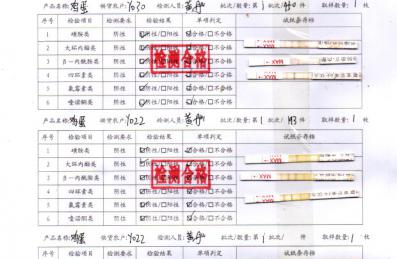 产品名称:鸡蛋 供货农户:Y030 检测人员: 批次/数量:第1批次/ 件 取样数量:1 枚
序号 检验项目 检测要求 检验结果 单项判定 试纸条存档
1 磺胺类 阴性 ☑阴性/☐阳性 ☑合格/☐不合格
2 大环内酯类 阴性 ☑阴性/☐阳性 ☑合格/☐不合格
3 β-内酰胺类 阴性 ☑阴性/☐阳性 ☑合格/☐不合格
4 四环素类 阴性 ☑阴性/☐阳性 ☑合格/☐不合格
5 氟霉素类 阴性 ☑阴性/☐阳性 ☑合格/☐不合格
6 喹诺酮类 阴性 ☑阴性/☐阳性 ☑合格/☐不合格
检测合格
MAX
产品名称:鸡蛋 供货农户:Y022 检测人员: 批次/数量:第1批次/ 件 取样数量:1 枚
序号 检验项目 检测要求 检验结果 单项判定 试纸条存档
1 磺胺类 阴性 ☑阴性/☐阳性 ☑合格/☐不合格
2 大环内酯类 阴性 ☑阴性/☐阳性 ☑合格/☐不合格
3 β-内酰胺类 阴性 ☑阴性/☐阳性 ☑合格/☐不合格
4 四环素类 阴性 ☑阴性/☐阳性 ☑合格/☐不合格
5 氟霉素类 阴性 ☑阴性/☐阳性 ☑合格/☐不合格
6 喹诺酮类 阴性 ☑阴性/☐阳性 ☑合格/☐不合格
检测合格
MAX
产品名称:鸡蛋 供货农户:Y022 检测人员: 批次/数量:第1批次/ 件 取样数量:1 枚
序号 检验项目 检测要求 检验结果 单项判定 试纸条存档